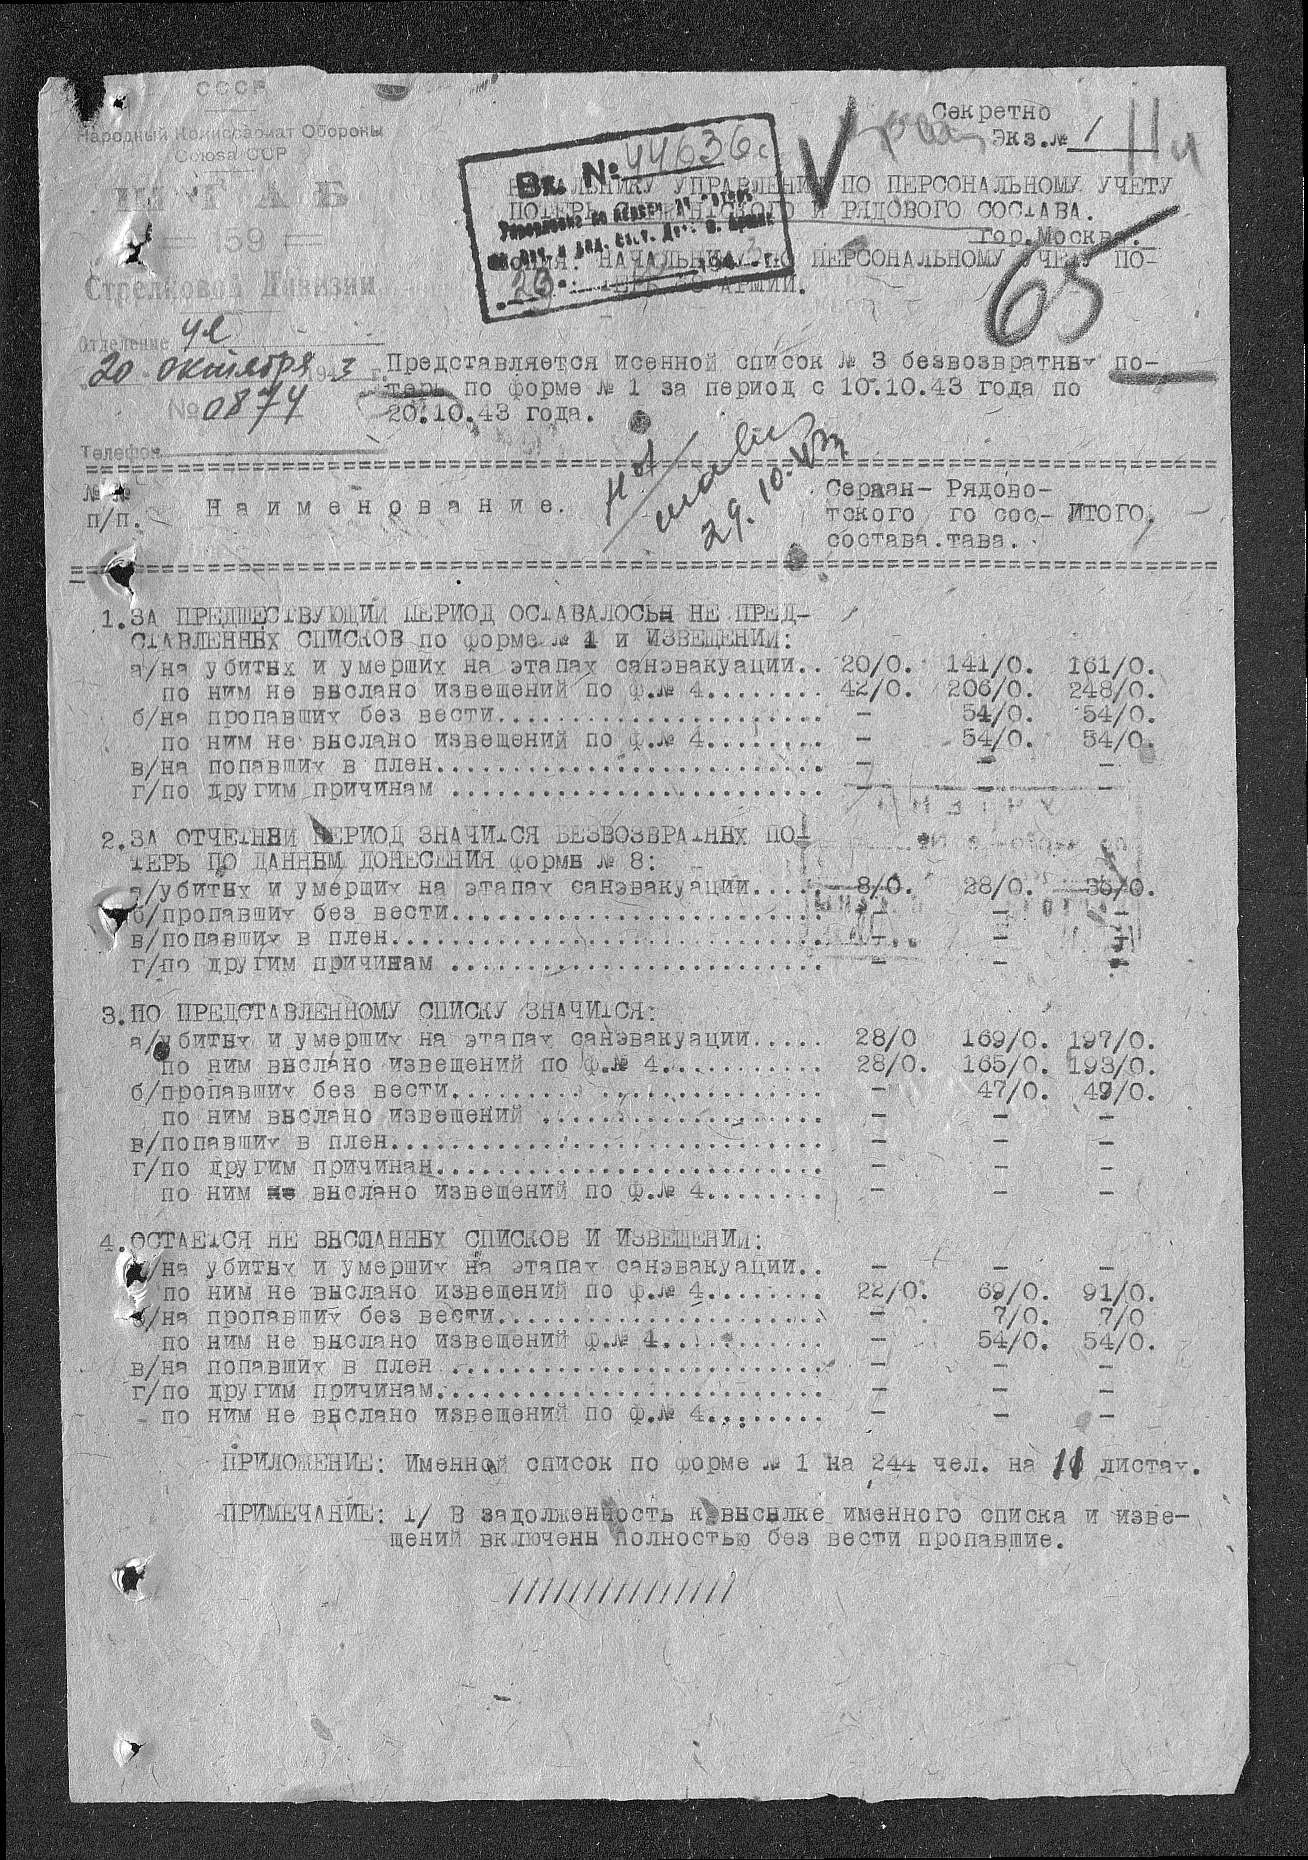 СССР
Народный Комиссариат Обороны
Союза ССР
ШТАБ
— 59 —
Стрелковой Дивизии
Отделение
20 октября 1943 г.
№ 0874
Телефон
Секретно
Экз.№ 1
11
65
Вх. № 44636с
23
НАЧАЛЬНИКУ УПРАВЛЕНИЯ ПО ПЕРСОНАЛЬНОМУ УЧЕТУ
ПОТЕРЬ СЕРЖАНТСКОГО И РЯДОВОГО СОСТАВА.
гор.Москва.
КОПИЯ: НАЧАЛЬНИКУ ПО ПЕРСОНАЛЬНОМУ УЧЕТУ ПО-
ТЕРЬ АРМИИ.
Представляется исенной список № 3 безвозвратных по-
терь по форме № 1 за период с 10.10.43 года по
20.10.43 года.
29.10.43
№№
п/п.
Наименование.
Сержан- Рядово- ИТОГО.
тского го сос-
состава. тава.
1. ЗА ПРЕДШЕСТВУЮЩИЙ ПЕРИОД ОСТАВАЛОСЬ НЕ ПРЕД-
СТАВЛЕННЫХ СПИСКОВ по форме № 1 и ИЗВЕЩЕНИЙ:
а/на убитых и умерших на этапах санэвакуации.. 20/0. 141/0. 161/0.
по ним не выслано извещений по ф.№ 4........ 42/0. 206/0. 248/0.
б/на пропавших без вести..................... - 54/0. 54/0.
по ним не выслано извещений по ф.№ 4........ - 54/0. 54/0.
в/на попавших в плен......................... - - -
г/по другим причинам ........................ - - -
2. ЗА ОТЧЕТНЫЙ ПЕРИОД ЗНАЧИТСЯ БЕЗВОЗВРАТНЫХ ПО-
ТЕРЬ ПО ДАННЫМ ДОНЕСЕНИЯ формы № 8:
а/убитых и умерших на этапах санэвакуации..... 8/0. 28/0. 36/0.
б/пропавших без вести........................ - - -
в/попавших в плен............................ - - -
г/по другим причинам ........................ - - -
3. ПО ПРЕДСТАВЛЕННОМУ СПИСКУ ЗНАЧИТСЯ:
а/убитых и умерших на этапах санэвакуации..... 28/0 169/0. 197/0.
по ним выслано извещений по ф.№ 4........... 28/0. 165/0. 193/0.
б/пропавших без вести........................ - 47/0. 47/0.
по ним выслано извещений ................... - - -
в/попавших в плен............................ - - -
г/по другим причинан......................... - - -
по ним не выслано извещений по ф.№ 4........ - - -
4. ОСТАЕТСЯ НЕ ВЫСЛАННЫХ СПИСКОВ И ИЗВЕЩЕНИЙ:
а/на убитых и умерших на этапах санэвакуации.. - - -
по ним не выслано извещений по ф.№ 4........ 22/0. 69/0. 91/0.
б/на пропавших без вести..................... - 7/0. 7/0
по ним не выслано извещений ф.№ 4........... - 54/0. 54/0.
в/на попавших в плен ........................ - - -
г/по другим причинам......................... - - -
- по ним не выслано извещений по ф.№ 4........ - - -
ПРИЛОЖЕНИЕ: Именной список по форме № 1 на 244 чел. на 11 листах.
ПРИМЕЧАНИЕ: 1/ В задолженность к высылке именного списка и изве-
щений включены полностью без вести пропавшие.
///////////////